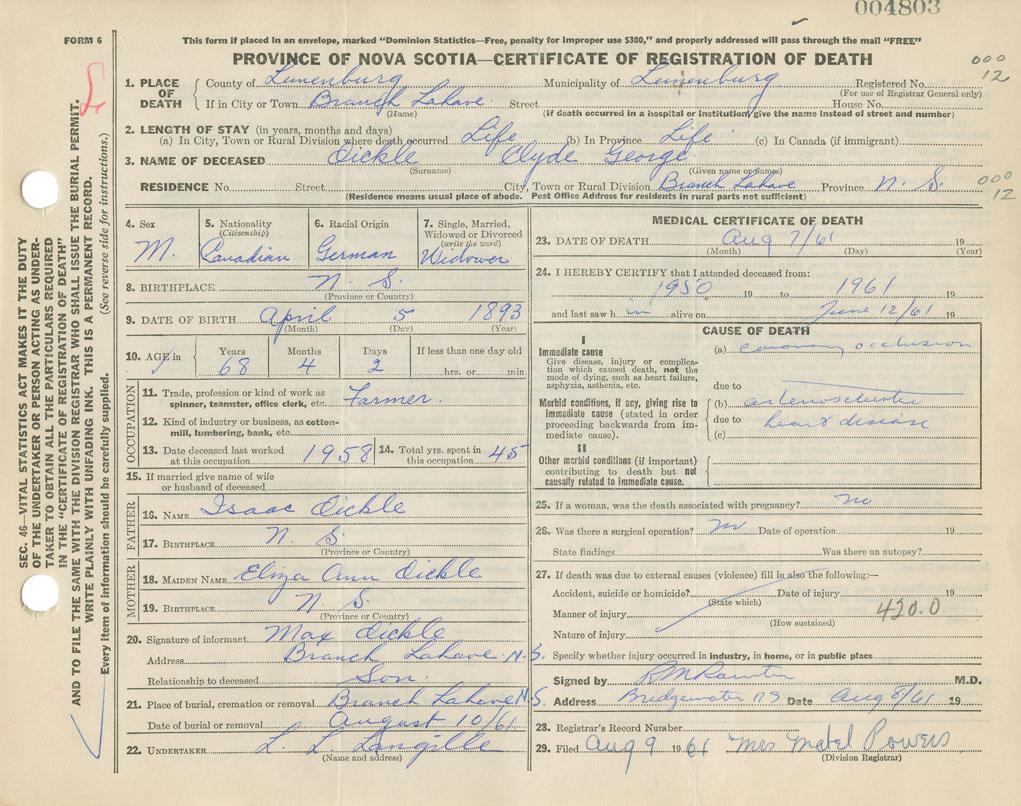 004803
FORM 6
This form if placed in an envelope, marked "Dominion Statistics—Free, penalty for improper use $300," and properly addressed will pass through the mail "FREE"
PROVINCE OF NOVA SCOTIA—CERTIFICATE OF REGISTRATION OF DEATH
000
12
1. PLACE OF DEATH
County of Lunenburg Municipality of Lunenburg Registered No.
(For use of Registrar General only)
If in City or Town Branch Lahave Street House No.
(Name) (if death occurred in a hospital or institution, give the name instead of street and number)
2. LENGTH OF STAY (in years, months and days)
(a) In City, Town or Rural Division where death occurred Life (b) In Province Life (c) In Canada (if immigrant)
3. NAME OF DECEASED Oickle Clyde George
(Surname) (Given name or names)
RESIDENCE No. Street City, Town or Rural Division Branch Lahave Province N. S.
000
12
(Residence means usual place of abode. Post Office Address for residents in rural parts not sufficient)
4. Sex
M.
5. Nationality
(Citizenship)
Canadian
6. Racial Origin
German
7. Single, Married,
Widowed or Divorced
(write the word)
Widower
8. BIRTHPLACE N. S.
(Province or Country)
9. DATE OF BIRTH April 5 1893
(Month) (Day) (Year)
10. AGE in Years Months Days If less than one day old
68 4 2 hrs. or min.
OCCUPATION
11. Trade, profession or kind of work as
spinner, teamster, office clerk, etc. Farmer.
12. Kind of industry or business, as cotton-
mill, lumbering, bank, etc.
13. Date deceased last worked
at this occupation 1958
14. Total yrs. spent in
this occupation 45
15. If married give name of wife
or husband of deceased
FATHER
16. NAME Isaac Oickle
17. BIRTHPLACE N. S.
(Province or Country)
MOTHER
18. MAIDEN NAME Eliza Ann Oickle
19. BIRTHPLACE N. S.
(Province or Country)
20. Signature of informant Max Oickle
Address Branch Lahave N. S.
Relationship to deceased Son.
21. Place of burial, cremation or removal Branch Lahave N. S.
Date of burial or removal August 10/61
22. UNDERTAKER L. L. Langille
(Name and address)
MEDICAL CERTIFICATE OF DEATH
23. DATE OF DEATH Aug 7/61 19
(Month) (Day) (Year)
24. I HEREBY CERTIFY that I attended deceased from:
1950 19 to 1961 19
and last saw h im alive on June 12/61 19
CAUSE OF DEATH
I
Immediate cause
Give disease, injury or complica-
tion which caused death, not the
mode of dying, such as heart failure,
asphyxia, asthenia, etc.
(a) coronary occlusion
due to
Morbid conditions, if any, giving rise to
immediate cause (stated in order
proceeding backwards from im-
mediate cause).
(b) arteriosclerotic
due to heart disease
(c)
II
Other morbid conditions (if important)
contributing to death but not
causally related to immediate cause.
25. If a woman, was the death associated with pregnancy? no
26. Was there a surgical operation? no Date of operation 19
State findings Was there an autopsy?
27. If death was due to external causes (violence) fill in also the following:—
Accident, suicide or homicide? Date of injury 19
(State which)
Manner of injury 420.0
(How sustained)
Nature of injury
Specify whether injury occurred in industry, in home, or in public place
Signed by M.D.
Address Bridgewater NS Date Aug 8/61 19
28. Registrar's Record Number
29. Filed Aug 9 1961 Mrs Mabel Powers
(Division Registrar)
SEC. 46—VITAL STATISTICS ACT MAKES IT THE DUTY
OF THE UNDERTAKER OR PERSON ACTING AS UNDER-
TAKER TO OBTAIN ALL THE PARTICULARS REQUIRED
IN THE "CERTIFICATE OF REGISTRATION OF DEATH"
AND TO FILE THE SAME WITH THE DIVISION REGISTRAR WHO SHALL ISSUE THE BURIAL PERMIT.
WRITE PLAINLY WITH UNFADING INK. THIS IS A PERMANENT RECORD.
Every item of information should be carefully supplied. (See reverse side for instructions.)